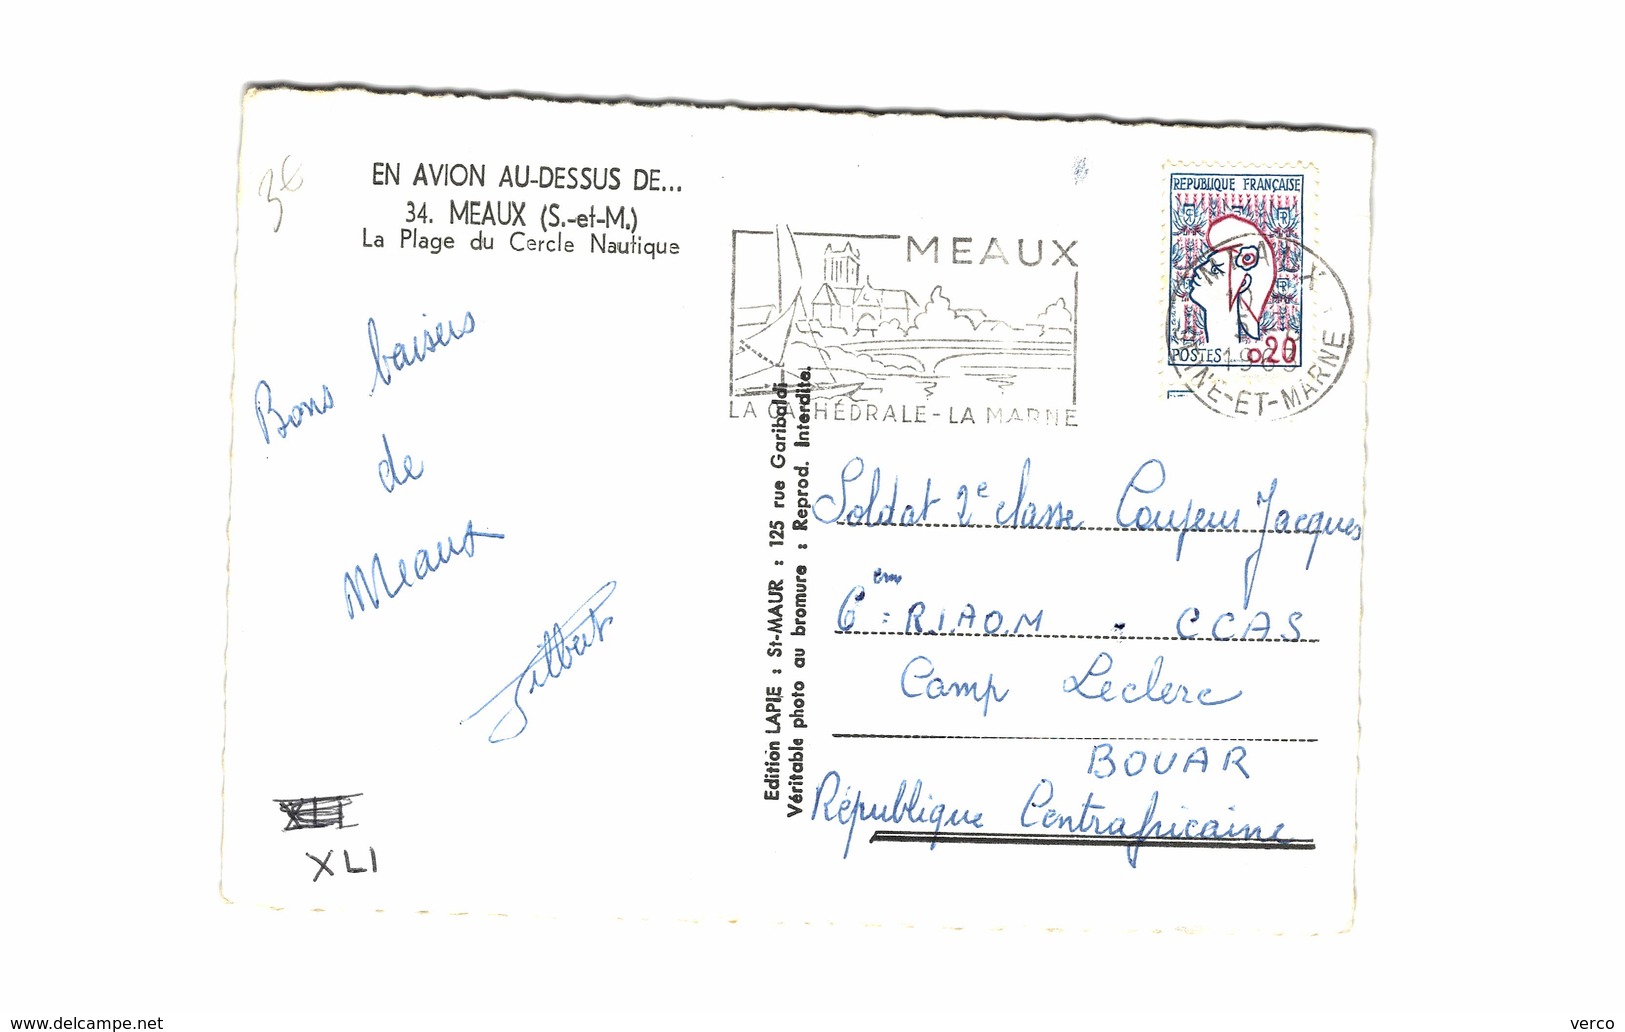 3€
EN AVION AU-DESSUS DE...
34. MEAUX (S.-et-M.)
La Plage du Cercle Nautique
Bons baisers
de
Meaux
Gilbert
XLI
Edition LAPIE : St-MAUR : 125 rue Garibaldi
Véritable photo au bromure : Reprod. Interdite.
MEAUX
LA CATHÉDRALE - LA MARNE
REPUBLIQUE FRANÇAISE
POSTES 0.20
MEAUX
SEINE-ET-MARNE
Soldat 2e classe Coupeur Jacques
6ème R.I.A.O.M - CCAS
Camp Leclerc
BOUAR
République Centrafricaine
www.delcampe.net
verco